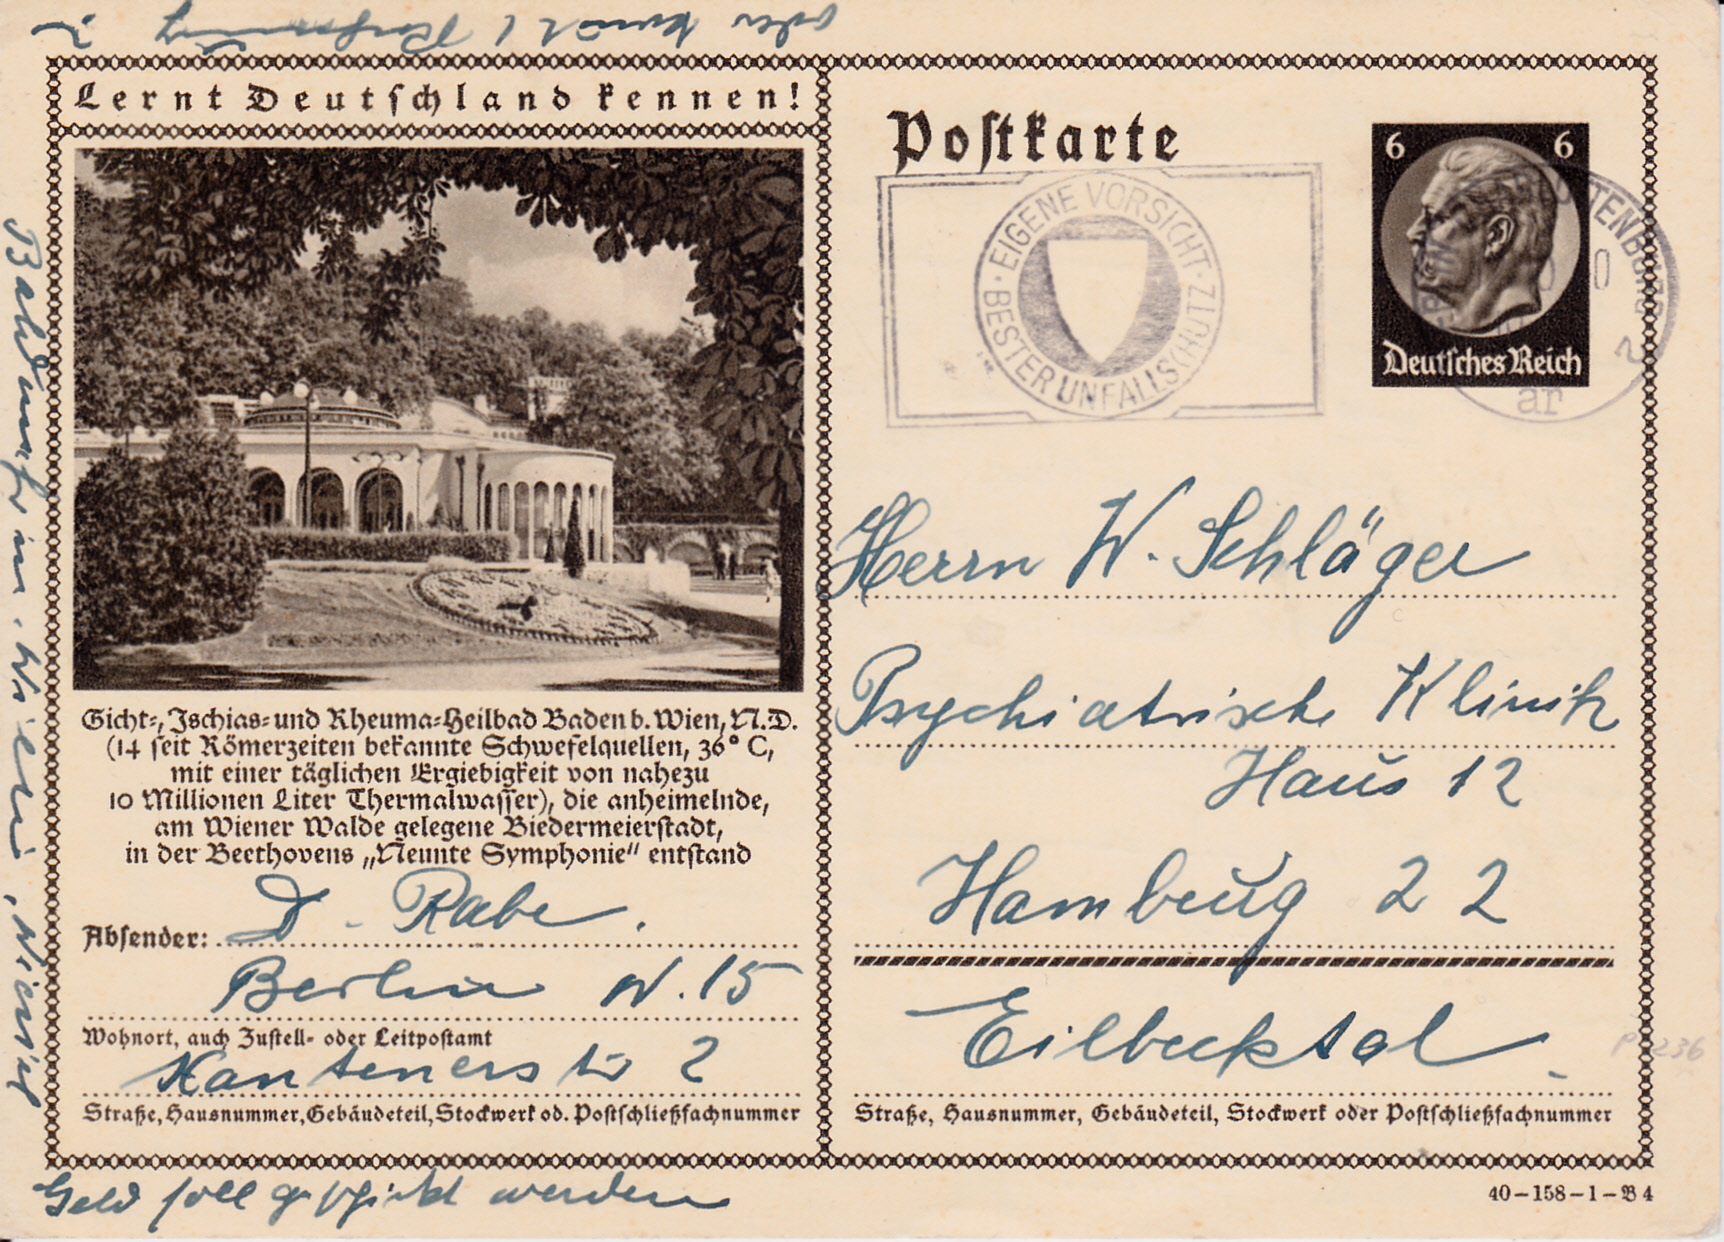 Lernt Deutschland kennen!
Gicht=, Ischias= und Rheuma=Heilbad Baden b. Wien, N.D.
(14 seit Römerzeiten bekannte Schwefelquellen, 36° C,
mit einer täglichen Ergiebigkeit von nahezu
10 Millionen Liter Thermalwasser), die anheimelnde,
am Wiener Walde gelegene Biedermeierstadt,
in der Beethovens „Neunte Symphonie“ entstand
Absender: D. Rabe.
Berlin W. 15
Wohnort, auch Zustell- oder Leitpostamt
Xantenerstr 2
Straße, Hausnummer, Gebäudeteil, Stockwerk od. Postschließfachnummer
Geld soll geschickt werden
oder
Postkarte
EIGENE VORSICHT · BESTER UNFALLSCHUTZ ·
6 6
Deutsches Reich
Herrn W. Schläger
Psychiatrische Klinik
Haus 12
Hamburg 22
Eilbecktal.
Straße, Hausnummer, Gebäudeteil, Stockwerk oder Postschließfachnummer
40-158-1-B 4